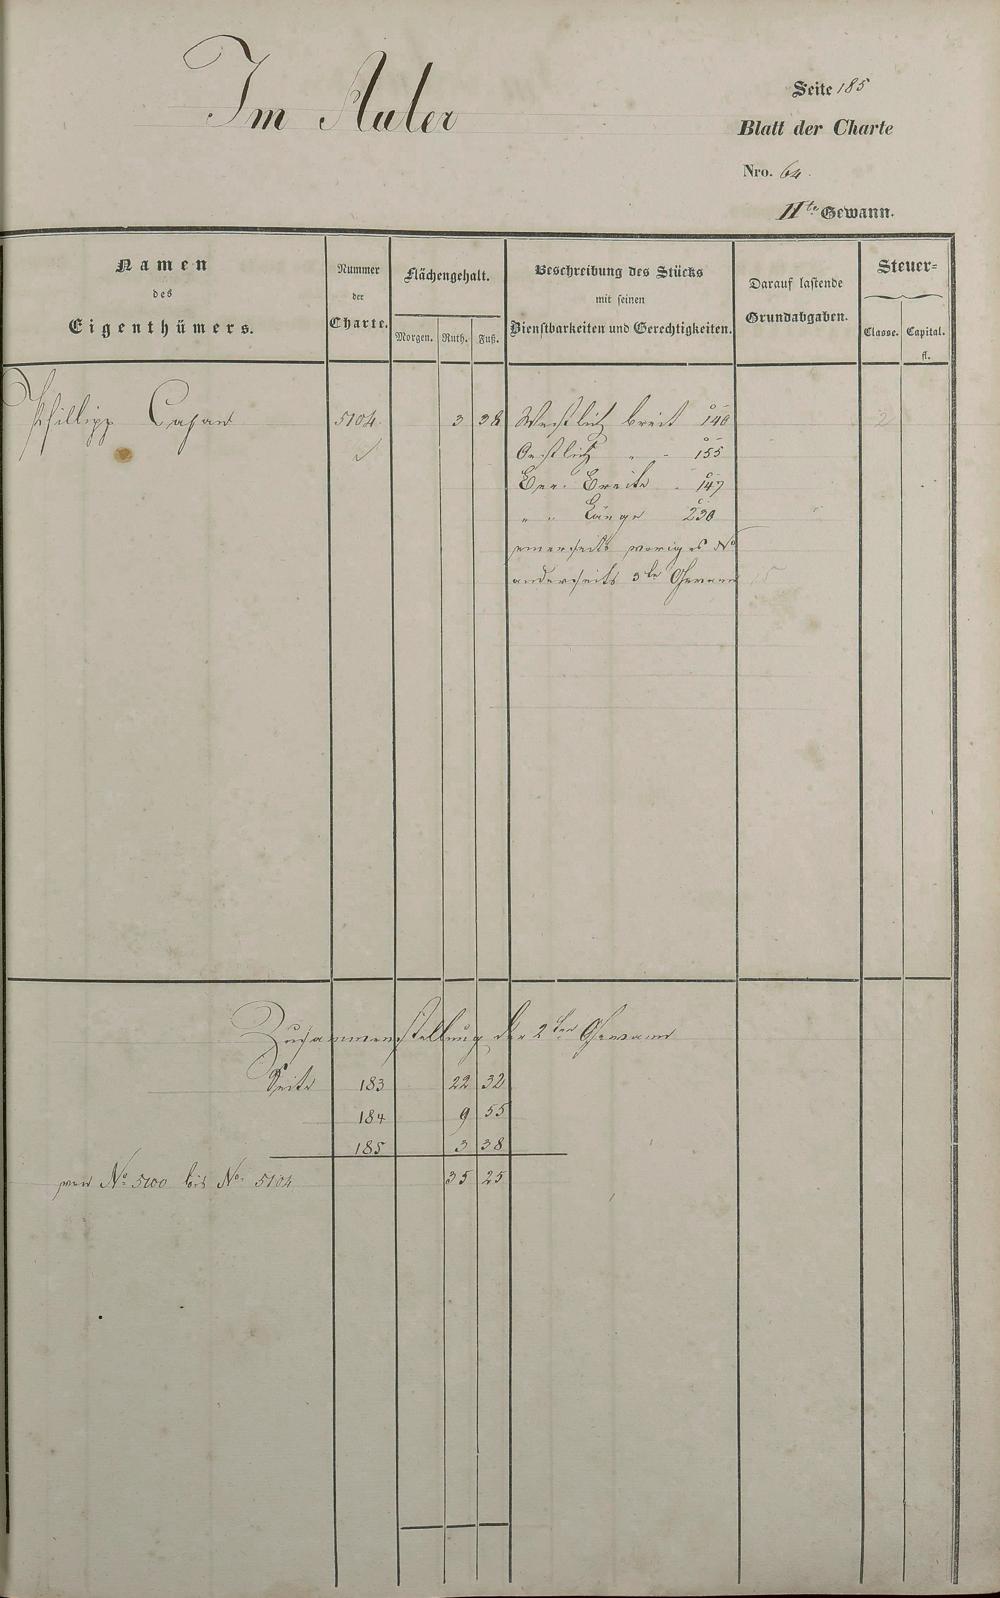 Im Auler
Seite 185
Blatt der Charte
Nro. 64.
IIte Gewann.
Namen des Eigenthümers.
Nummer der Charte.
Flächengehalt.
Morgen. Ruth. Fuß.
Beschreibung des Stücks mit seinen Dienstbarkeiten und Gerechtigkeiten.
Darauf lastende Grundabgaben.
Steuer-
Classe. Capital. fl.
Phillipp 5104. 3 38 Westlich breit 140 2
Oestlich " " 155
Ber. Breite " 147
" " Länge 230
einerseits voriges No
anderseits 3te Gewann
Zusammenstellung der 2ten Gewann
Seite 183 22 32
184 9 55
185 3 38
von No. 5100 bis No. 5104 35 25